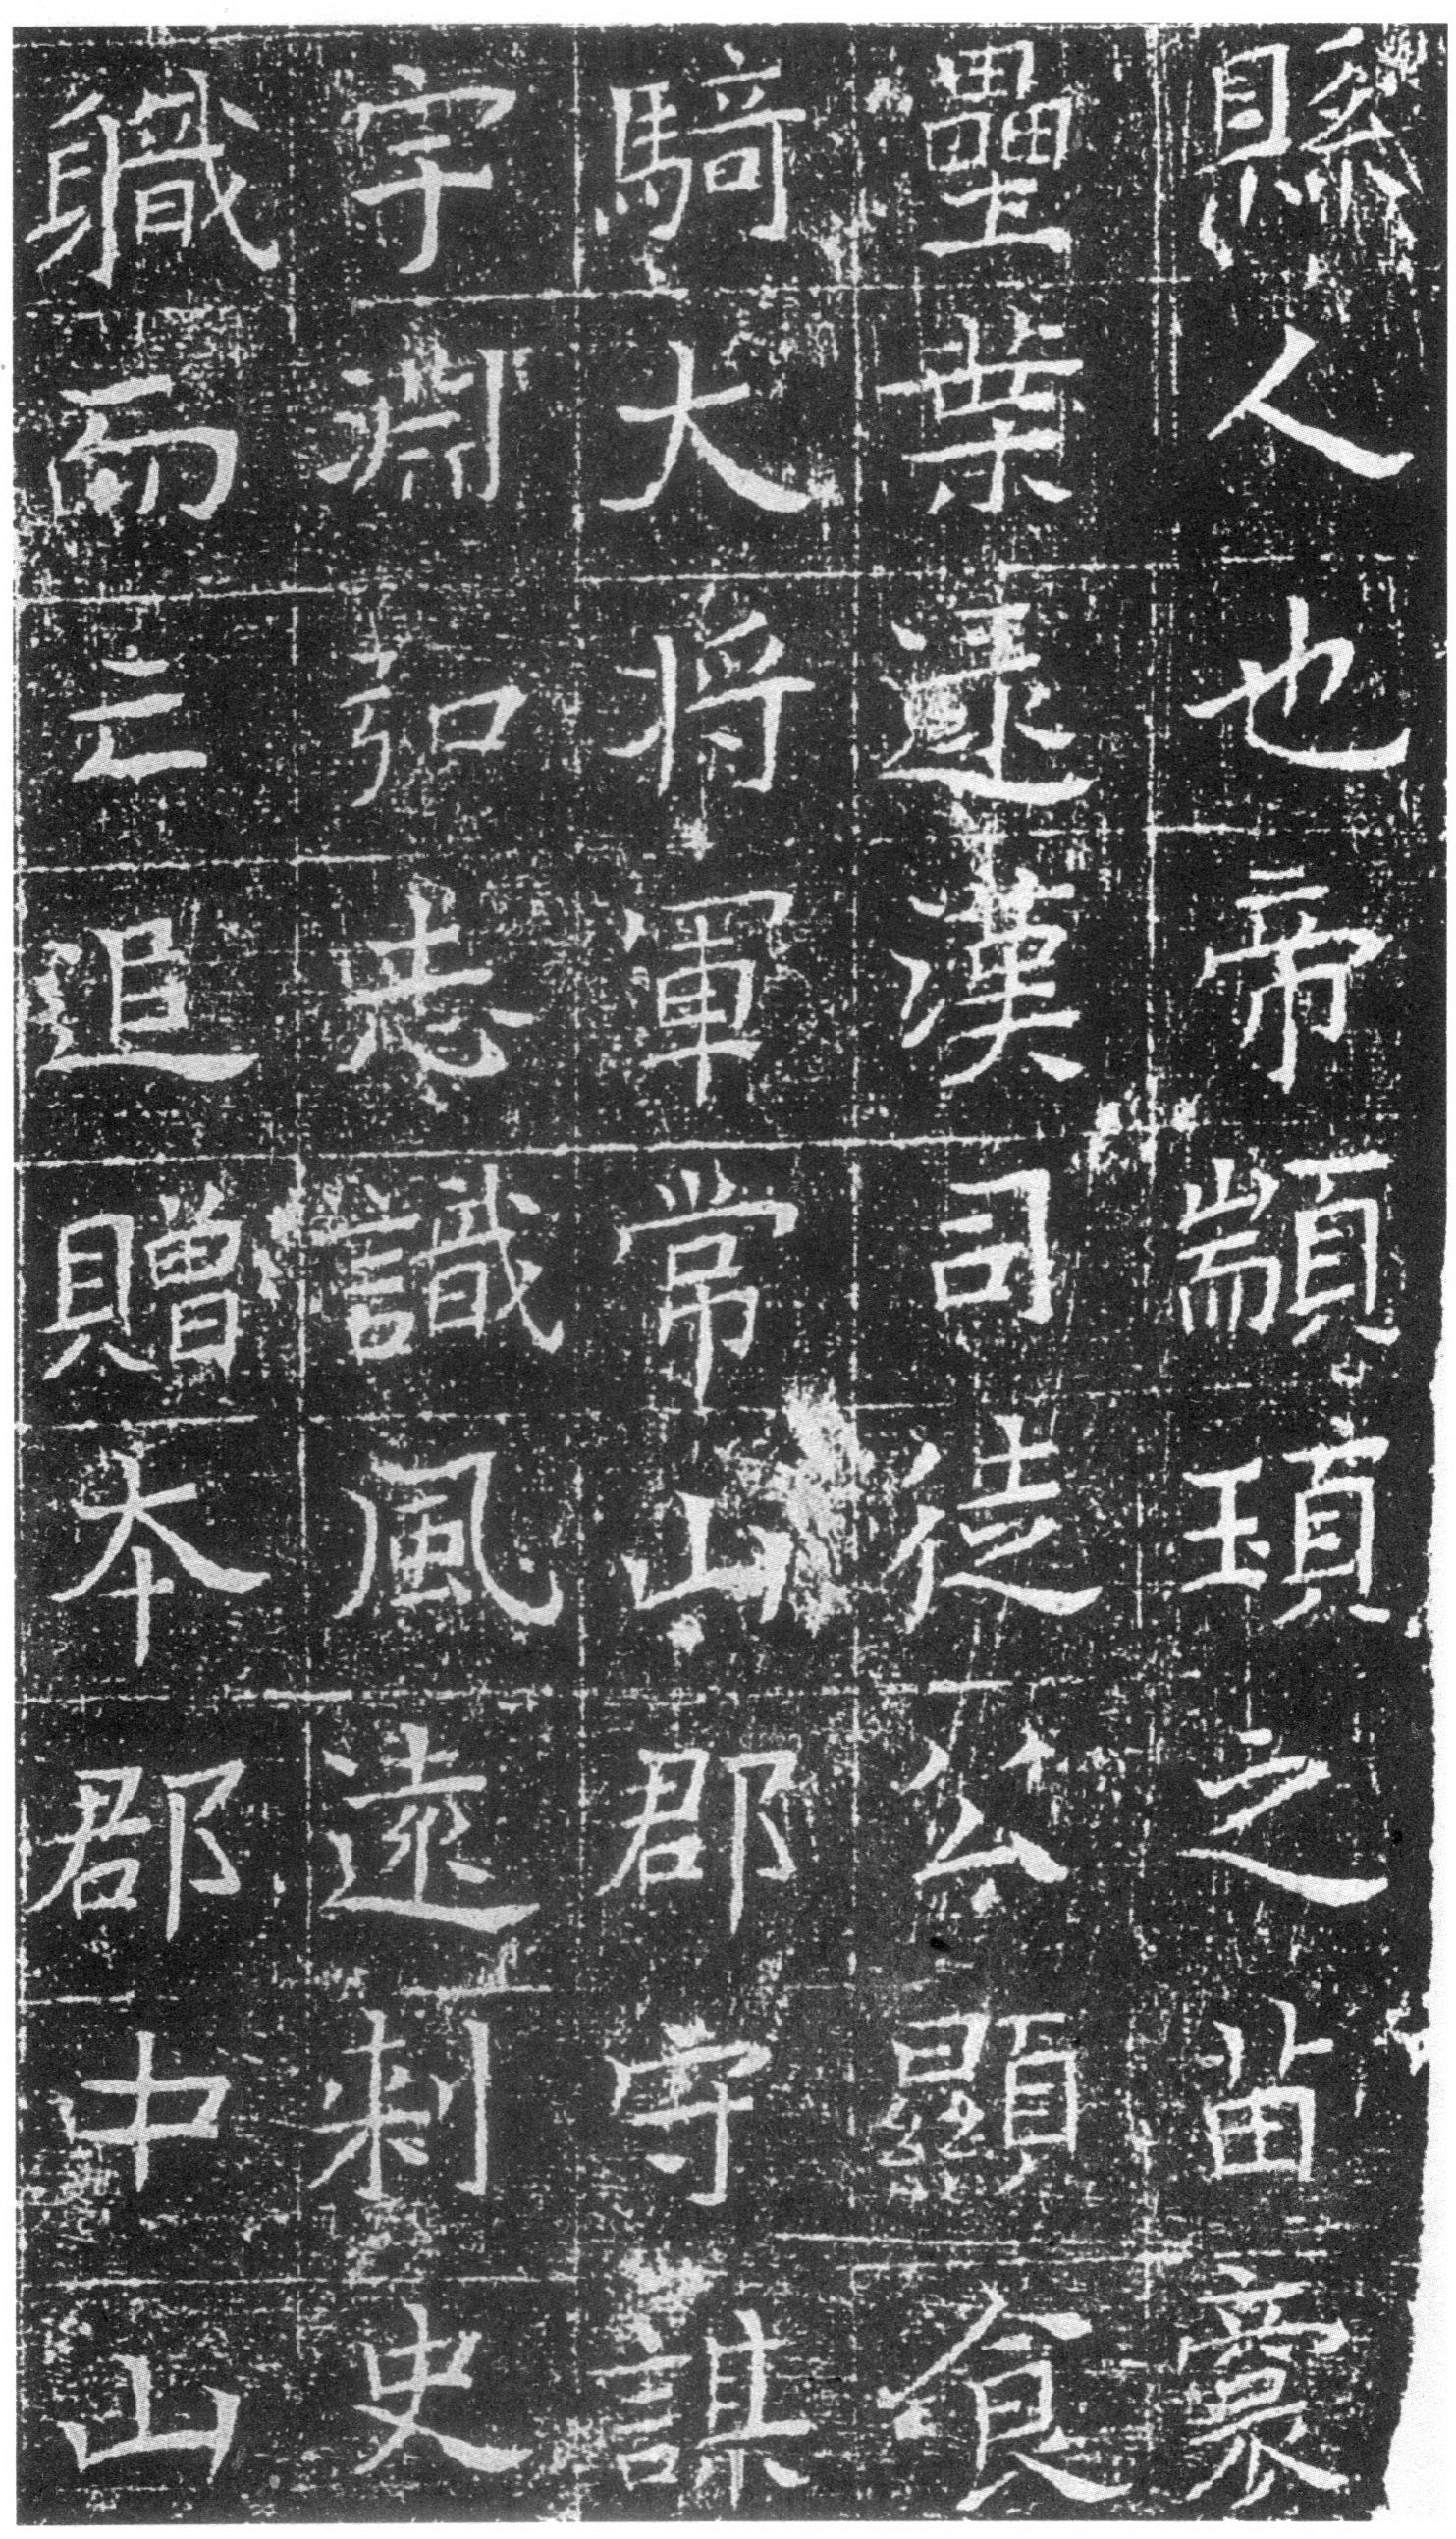 縣人也帝顓頊之苗裔
壘葉逮漢司徒公顯食
騎大將軍常山郡守諶
字淵弘志識風遠刺史
職而亡追贈本郡中山